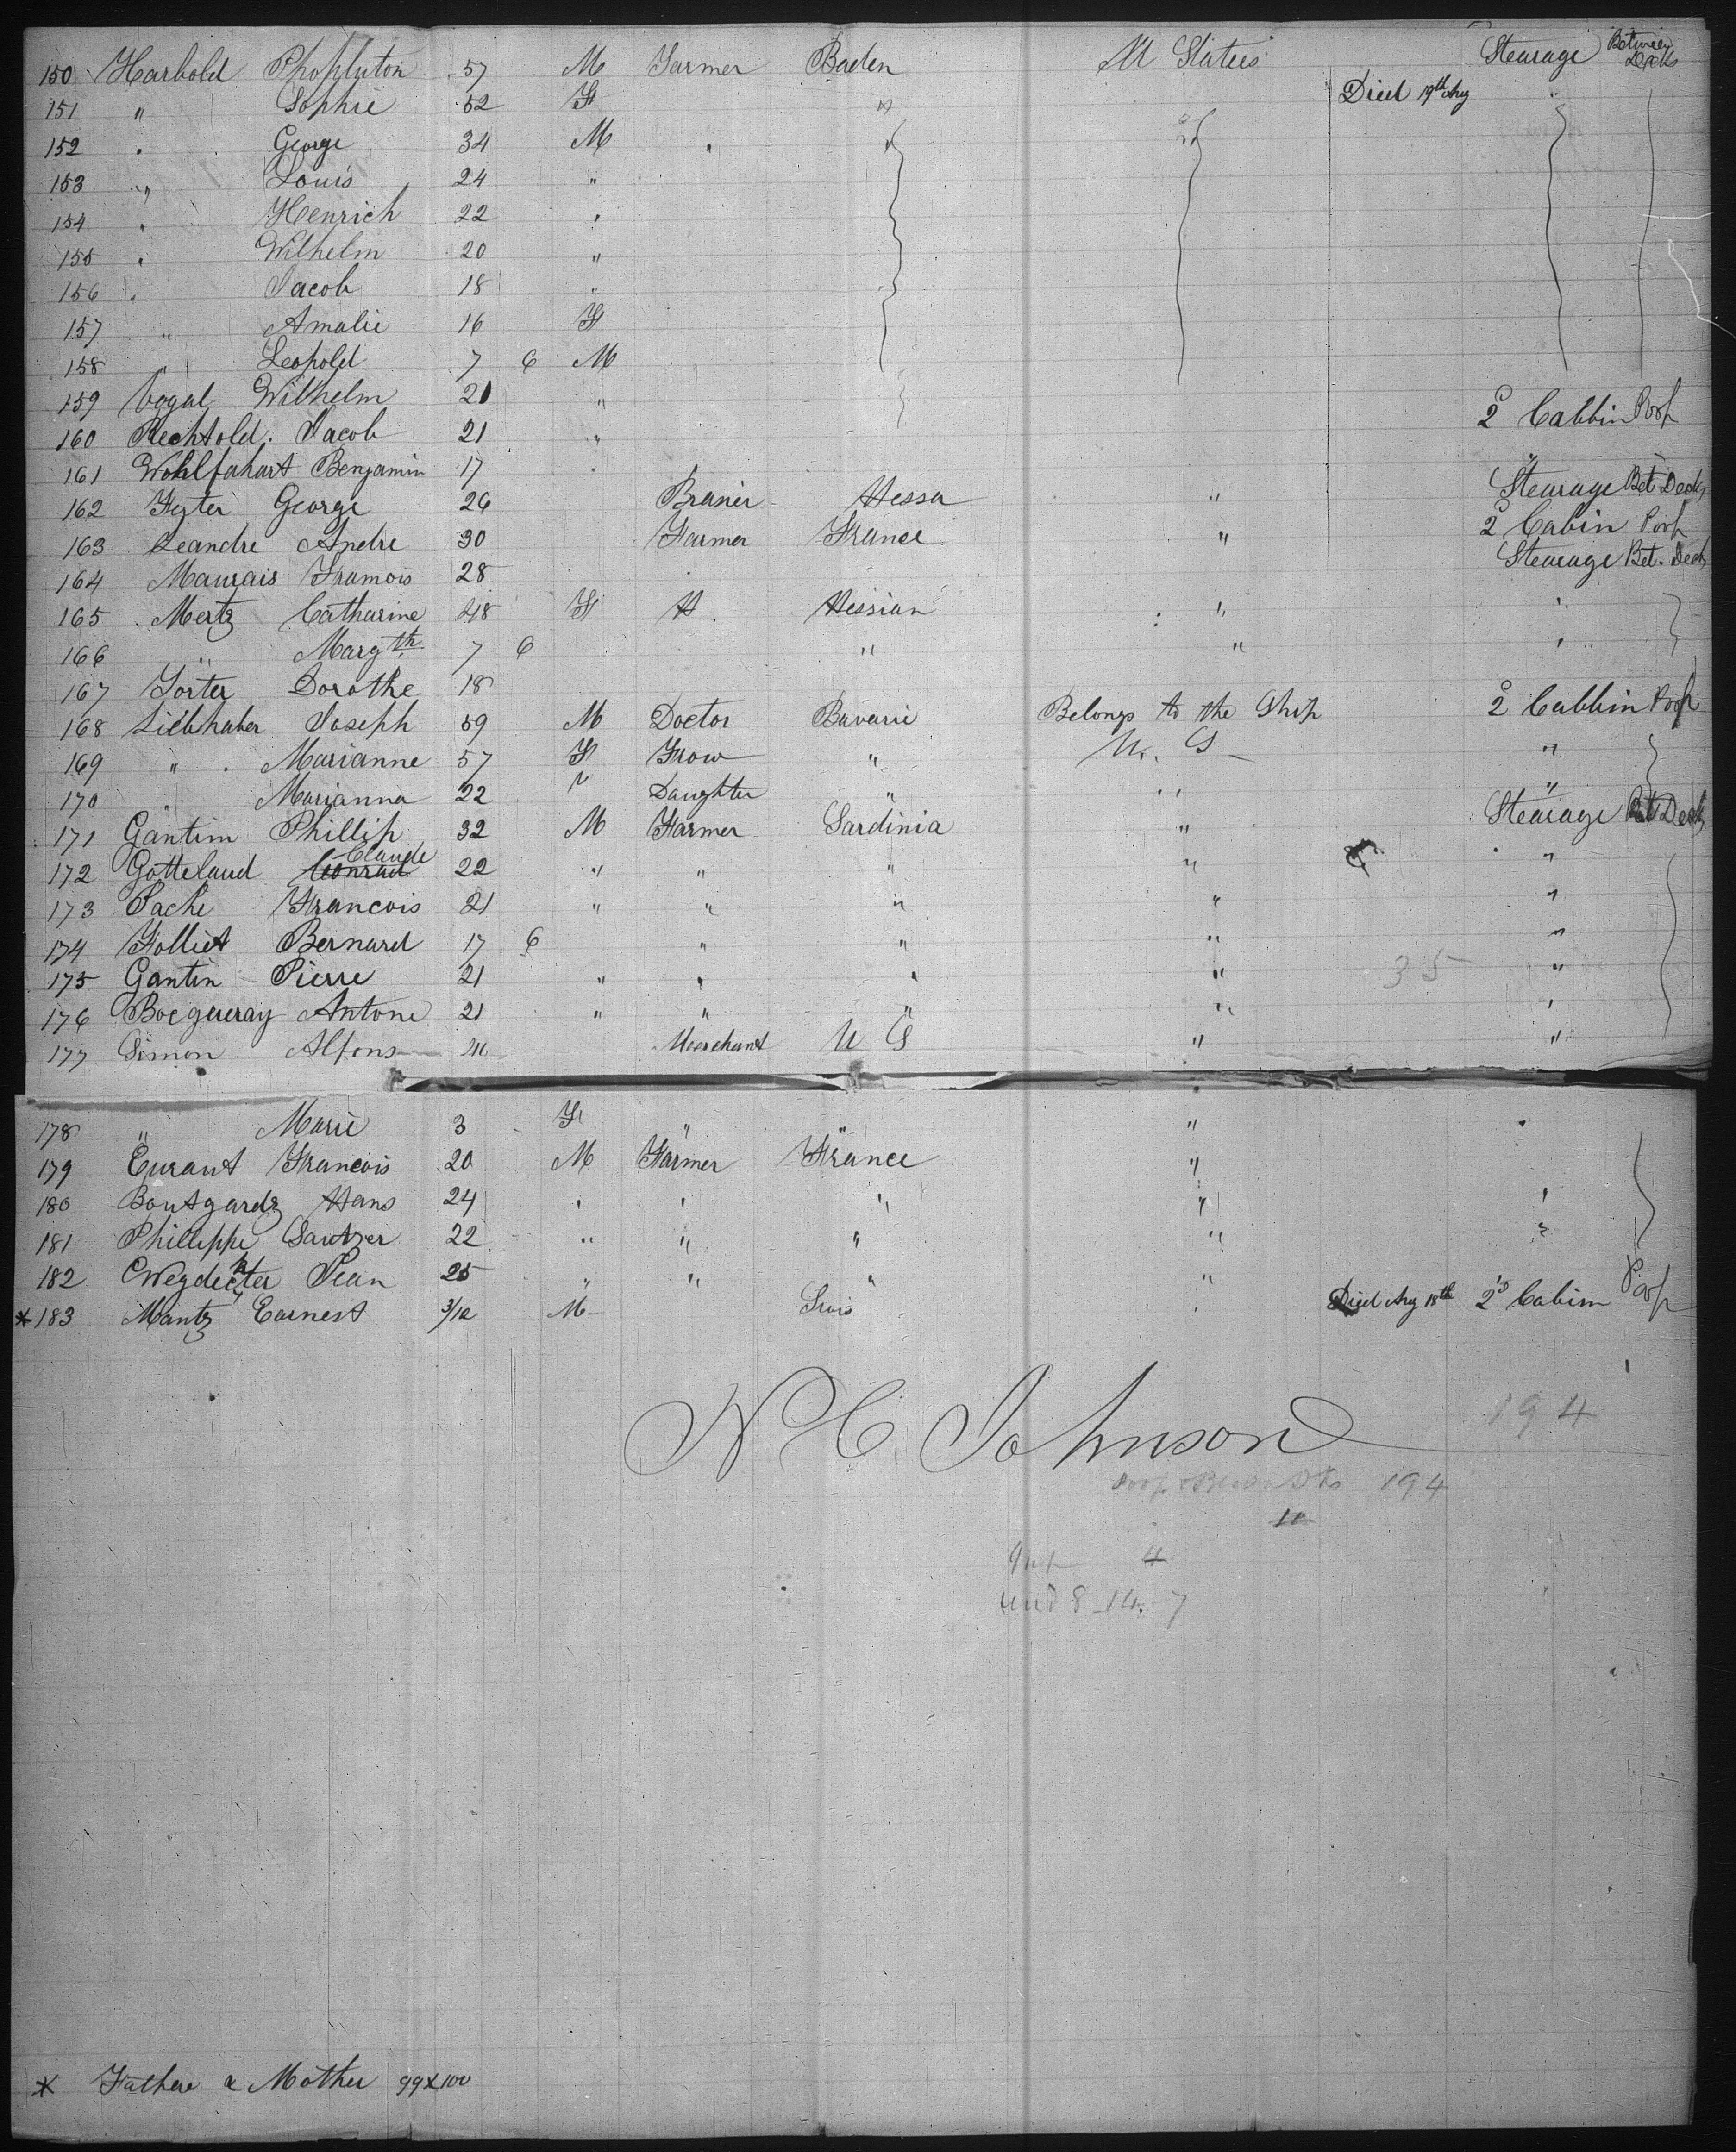 150 Harbold Phophluton 57 M Farmer Baden U States Stearage Between Decks
151 " Sophie 52 F " Died 19th Aug
152 " George 34 M " " "
153 " Louis 24 "
154 " Henrich 22 "
155 " Wilhelm 20 "
156 " Jacob 18 "
157 " Amalie 16 F
158 " Leopold 7 6 M
159 Vogal Wilhelm 21 " 2d Cabbin Poop
160 Rechtold. Jacob 21 "
161 Wohlfahart Benjamin 17 "
162 George 26 Hessa " Stearage Bet Decks
163 Leandre Andre 30 Farmer France " 2d Cabin Poop
164 28 Stearage Bet. Decks
165 Mertz Catharine 48 F Hessian " "
166 " Margth 7 6 " " "
167 Dorothe 18
168 Liebhaber Joseph 59 M Doctor Bavarie Belongs to the Ship 2d Cabbin Poop
169 " Marianne 57 F Frow " U. S "
170 " Marianna 22 " Daughter " " "
171 Gantim Phillip 32 M Farmer Sardinia " Stearage Bet Decks
172 Gotteland Conrad Claude 22 " " " " "
173 Pache Francois 21 " " " " "
174 Folliet Bernard 17 6 " " " "
175 Gantin Pierre 21 " " " " 35 "
176 Bocqueray Antone 21 " " " " "
177 Simon Alfons Merchant U S " "
178 " Marie 3 F " " " "
179 Eurant Francois 20 M Farmer France "
180 Boutgardz Hans 24 " " " " "
181 Philippe Sautzer 22 " " " " "
182 Jean 25 " " " " Poop
* 183 Mantz Earnest 3/12 M Swis " Died Aug 18th 2d Cabim
N C Johnson
194
194
4
und 8 14. 7
* Father & Mother 99 & 100